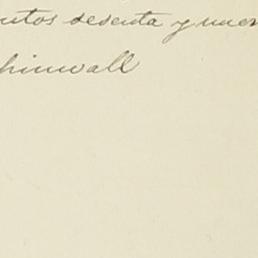 ntos sesenta y nuev
hinwall